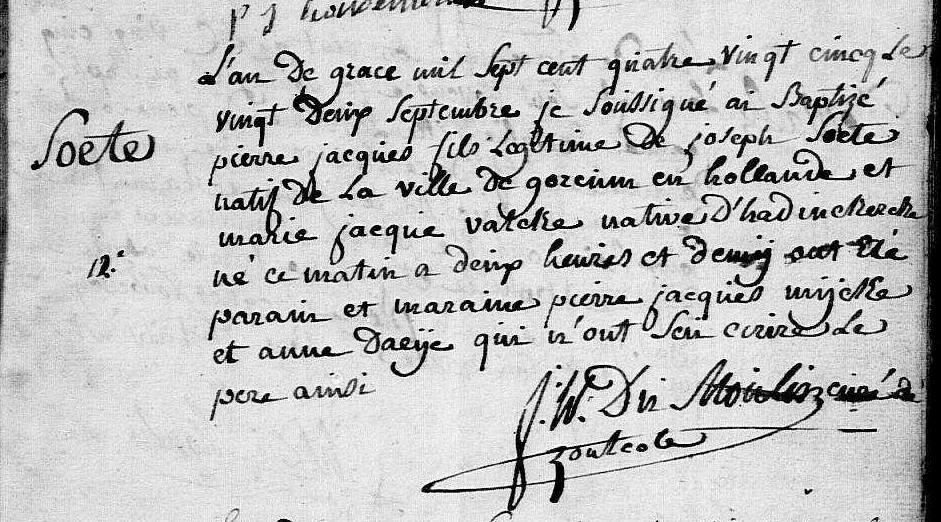 L'an De grace mil Sept cent quatre vingt cinq Le
vingt Deux Septembre je Soussigné ai Baptizé
Soete
pierre jacques fils Legitime De joseph Soete
natif de La ville de gorcum en hollande et
marie jacque valcke native D'hadinckercke
12.e
né ce matin a deux heures et demij ont été
parain et maraine pierre jacques mijcke
et anne Daeije qui n'ont Seu ecrire Le
pere ainsi
j. W. Du Moulin curé de
zoutcote